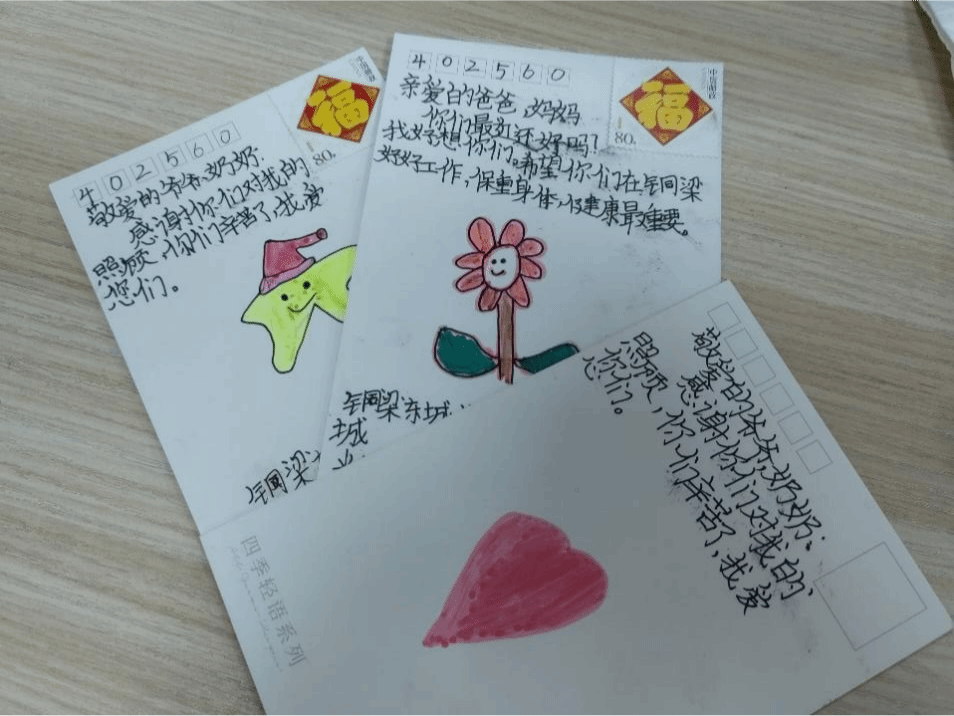 402560
敬爱的爷爷、奶奶:
感谢你们对我的
照顾,你们辛苦了,我爱
您们。
福
80
中国邮政
铜梁
402560
亲爱的爸爸、妈妈
你们最近还好吗?
我好想你们。希望你们在铜梁
好好工作,保重身体,健康最重要。
福
80
中国邮政
铜梁东城
城
敬爱的爷爷、奶奶:
感谢你们对我的
照顾,你们辛苦了,我爱
您们。
四季轻语系列